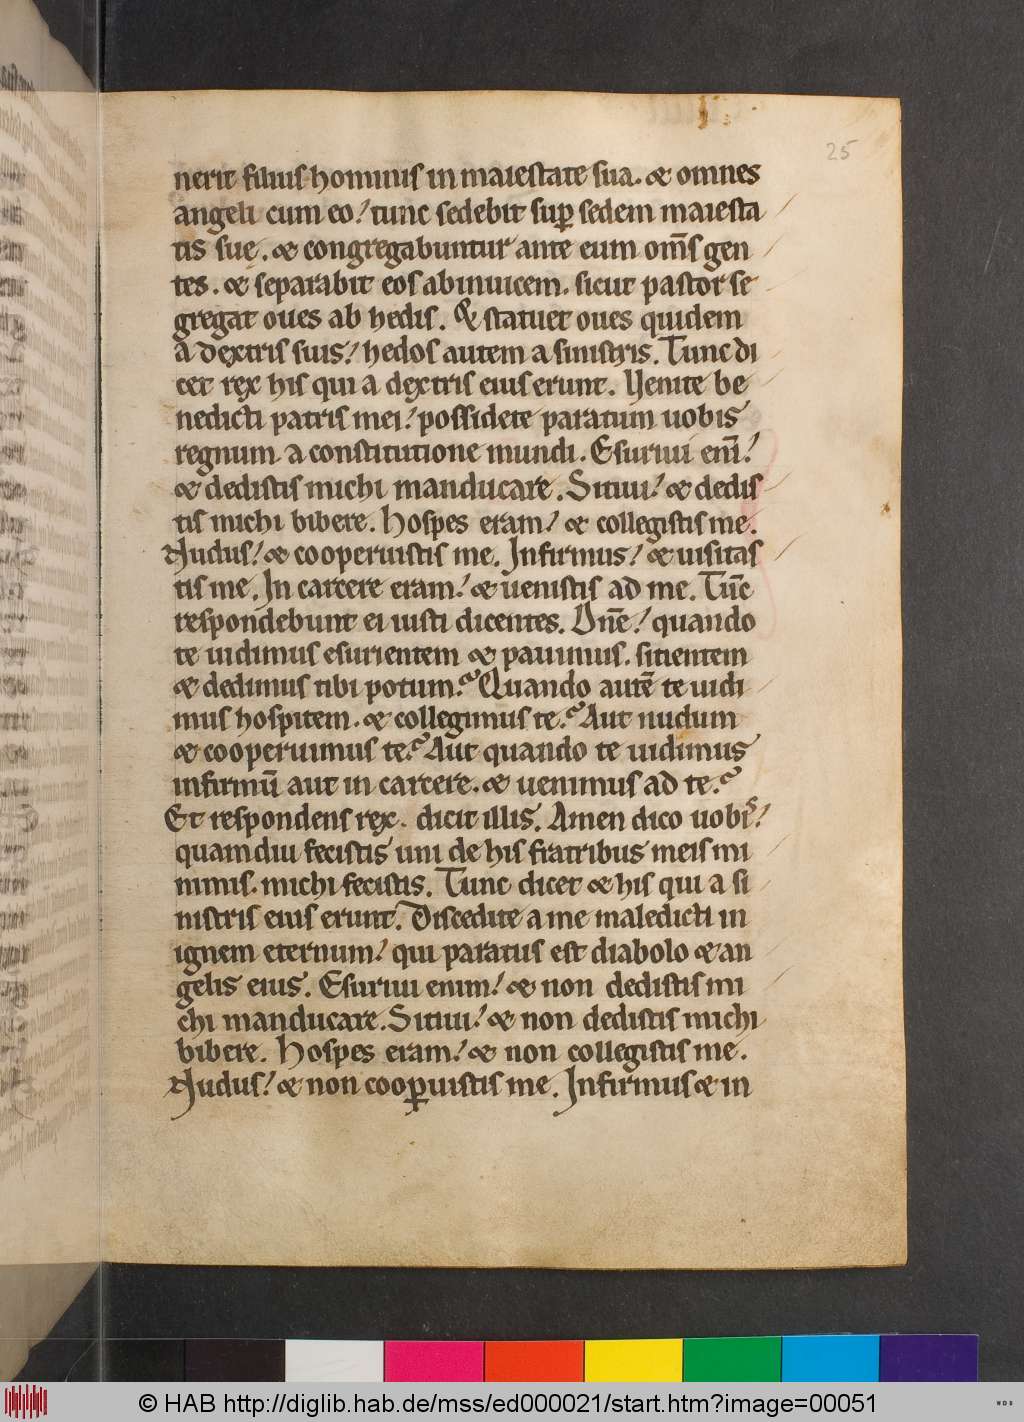 25
nerit filius hominis in maiestate sua. & omnes
angeli cum eo! tunc sedebit sup̱ sedem maiesta
tis suę. & congregabuntur ante eum om̄s gen
tes. & separabit eos abinuicem. sicut pastor se
gregat oues ab hedis. & statuet oues quidem
a dextris suis! hedos autem a sinistris. Tunc di
cet rex his qui a dextris eius erunt. Uenite be
nedicti patris mei! possidete paratum uobis
regnum a constitutione mundi. Esuriui eni̅!
& dedistis michi manducare. Sitiui! & dedis
tis michi bibere. Hospes eram! & collegistis me.
Nudus! & cooperuistis me. Infirmus! & uisitas
tis me. In carcere eram! & uenistis ad me. Tūc
respondebunt ei iusti dicentes. Dn̄e! quando
te uidimus esurientem & pauimus. sitientem
& dedimus tibi potum? Quando autē te uidi
mus hospitem. & collegimus te? Aut nudum
& cooperuimus te? Aut quando te uidimus
infirmū aut in carcere. & uenimus ad te?
Et respondens rex. dicit illis. Amen dico uobis!
quamdiu fecistis uni de his fratribus meis mi
nimis. michi fecistis. Tunc dicet & his qui a si
nistris eius erunt. Discedite a me maledicti in
ignem eternum! qui paratus est diabolo & an
gelis eius. Esuriui enim! & non dedistis mi
chi manducare. Sitiui! & non dedistis michi
bibere. Hospes eram! & non collegistis me.
Nudus! & non coop̱uistis me. Infirmus & in
© HAB http://diglib.hab.de/mss/ed000021/start.htm?image=00051